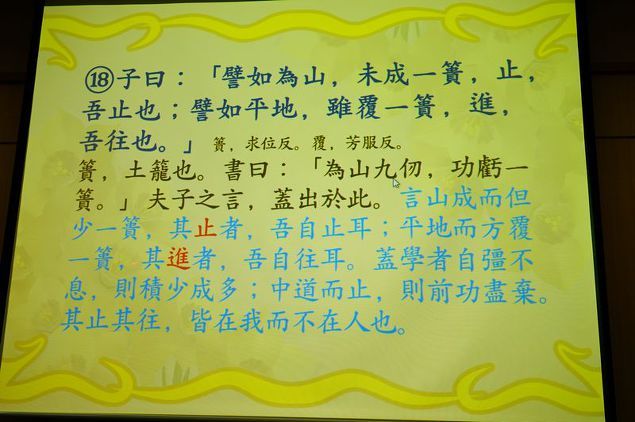 ⑱子曰：「譬如為山，未成一簣，止，
吾止也；譬如平地，雖覆一簣，進，
吾往也。」 簣，求位反。覆，芳服反。
簣，土籠也。書曰：「為山九仞，功虧一
簣。」夫子之言，蓋出於此。言山成而但
少一簣，其止者，吾自止耳；平地而方覆
一簣，其進者，吾自往耳。蓋學者自彊不
息，則積少成多；中道而止，則前功盡棄。
其止其往，皆在我而不在人也。